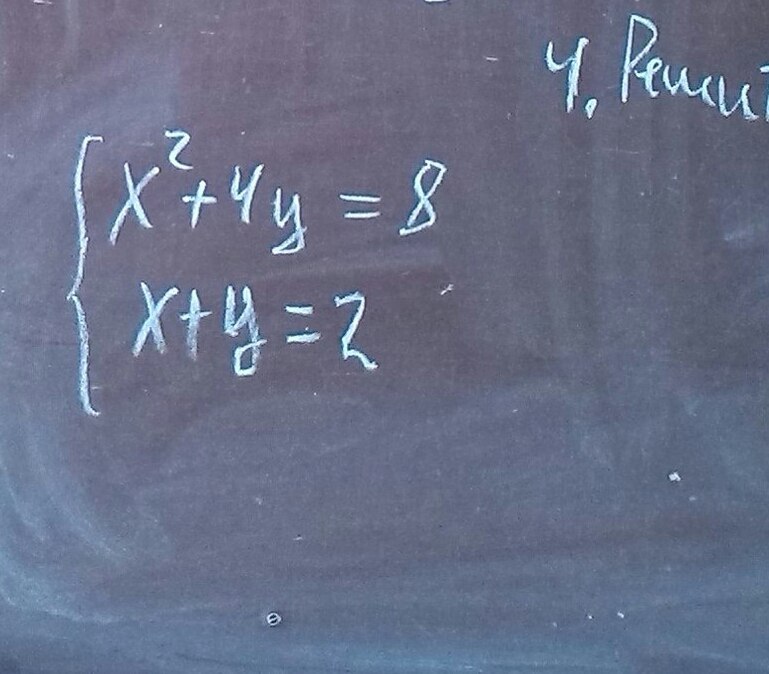 4. Решит
x²+4y = 8
x+y=2